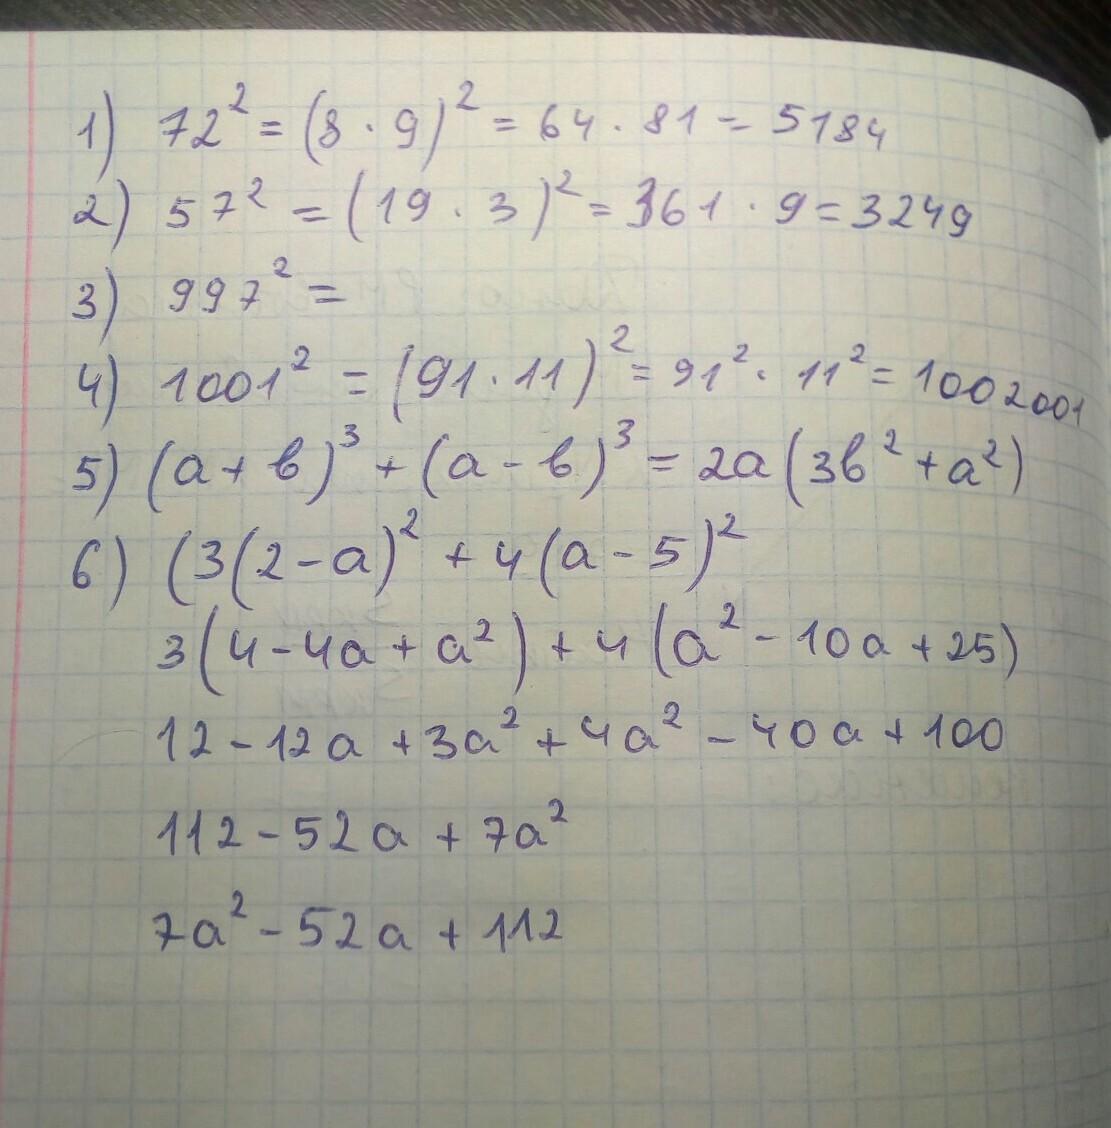 1) 72² = (8 · 9)² = 64 · 81 = 5184
2) 57² = (19 · 3)² = 361 · 9 = 3249
3) 997² =
4) 1001² = (91 · 11)² = 91² · 11² = 1002001
5) (a + b)³ + (a - b)³ = 2a(3b² + a²)
6) (3(2 - a)² + 4(a - 5)²
3(4 - 4a + a²) + 4(a² - 10a + 25)
12 - 12a + 3a² + 4a² - 40a + 100
112 - 52a + 7a²
7a² - 52a + 112